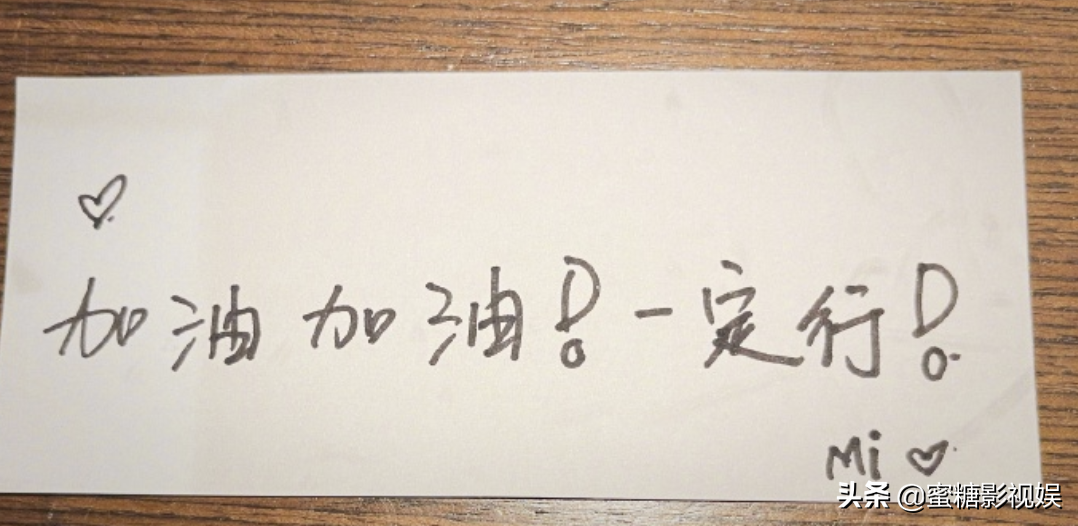 ♡
加油加油!一定行!
Mi ♡
头条 @蜜糖影视娱